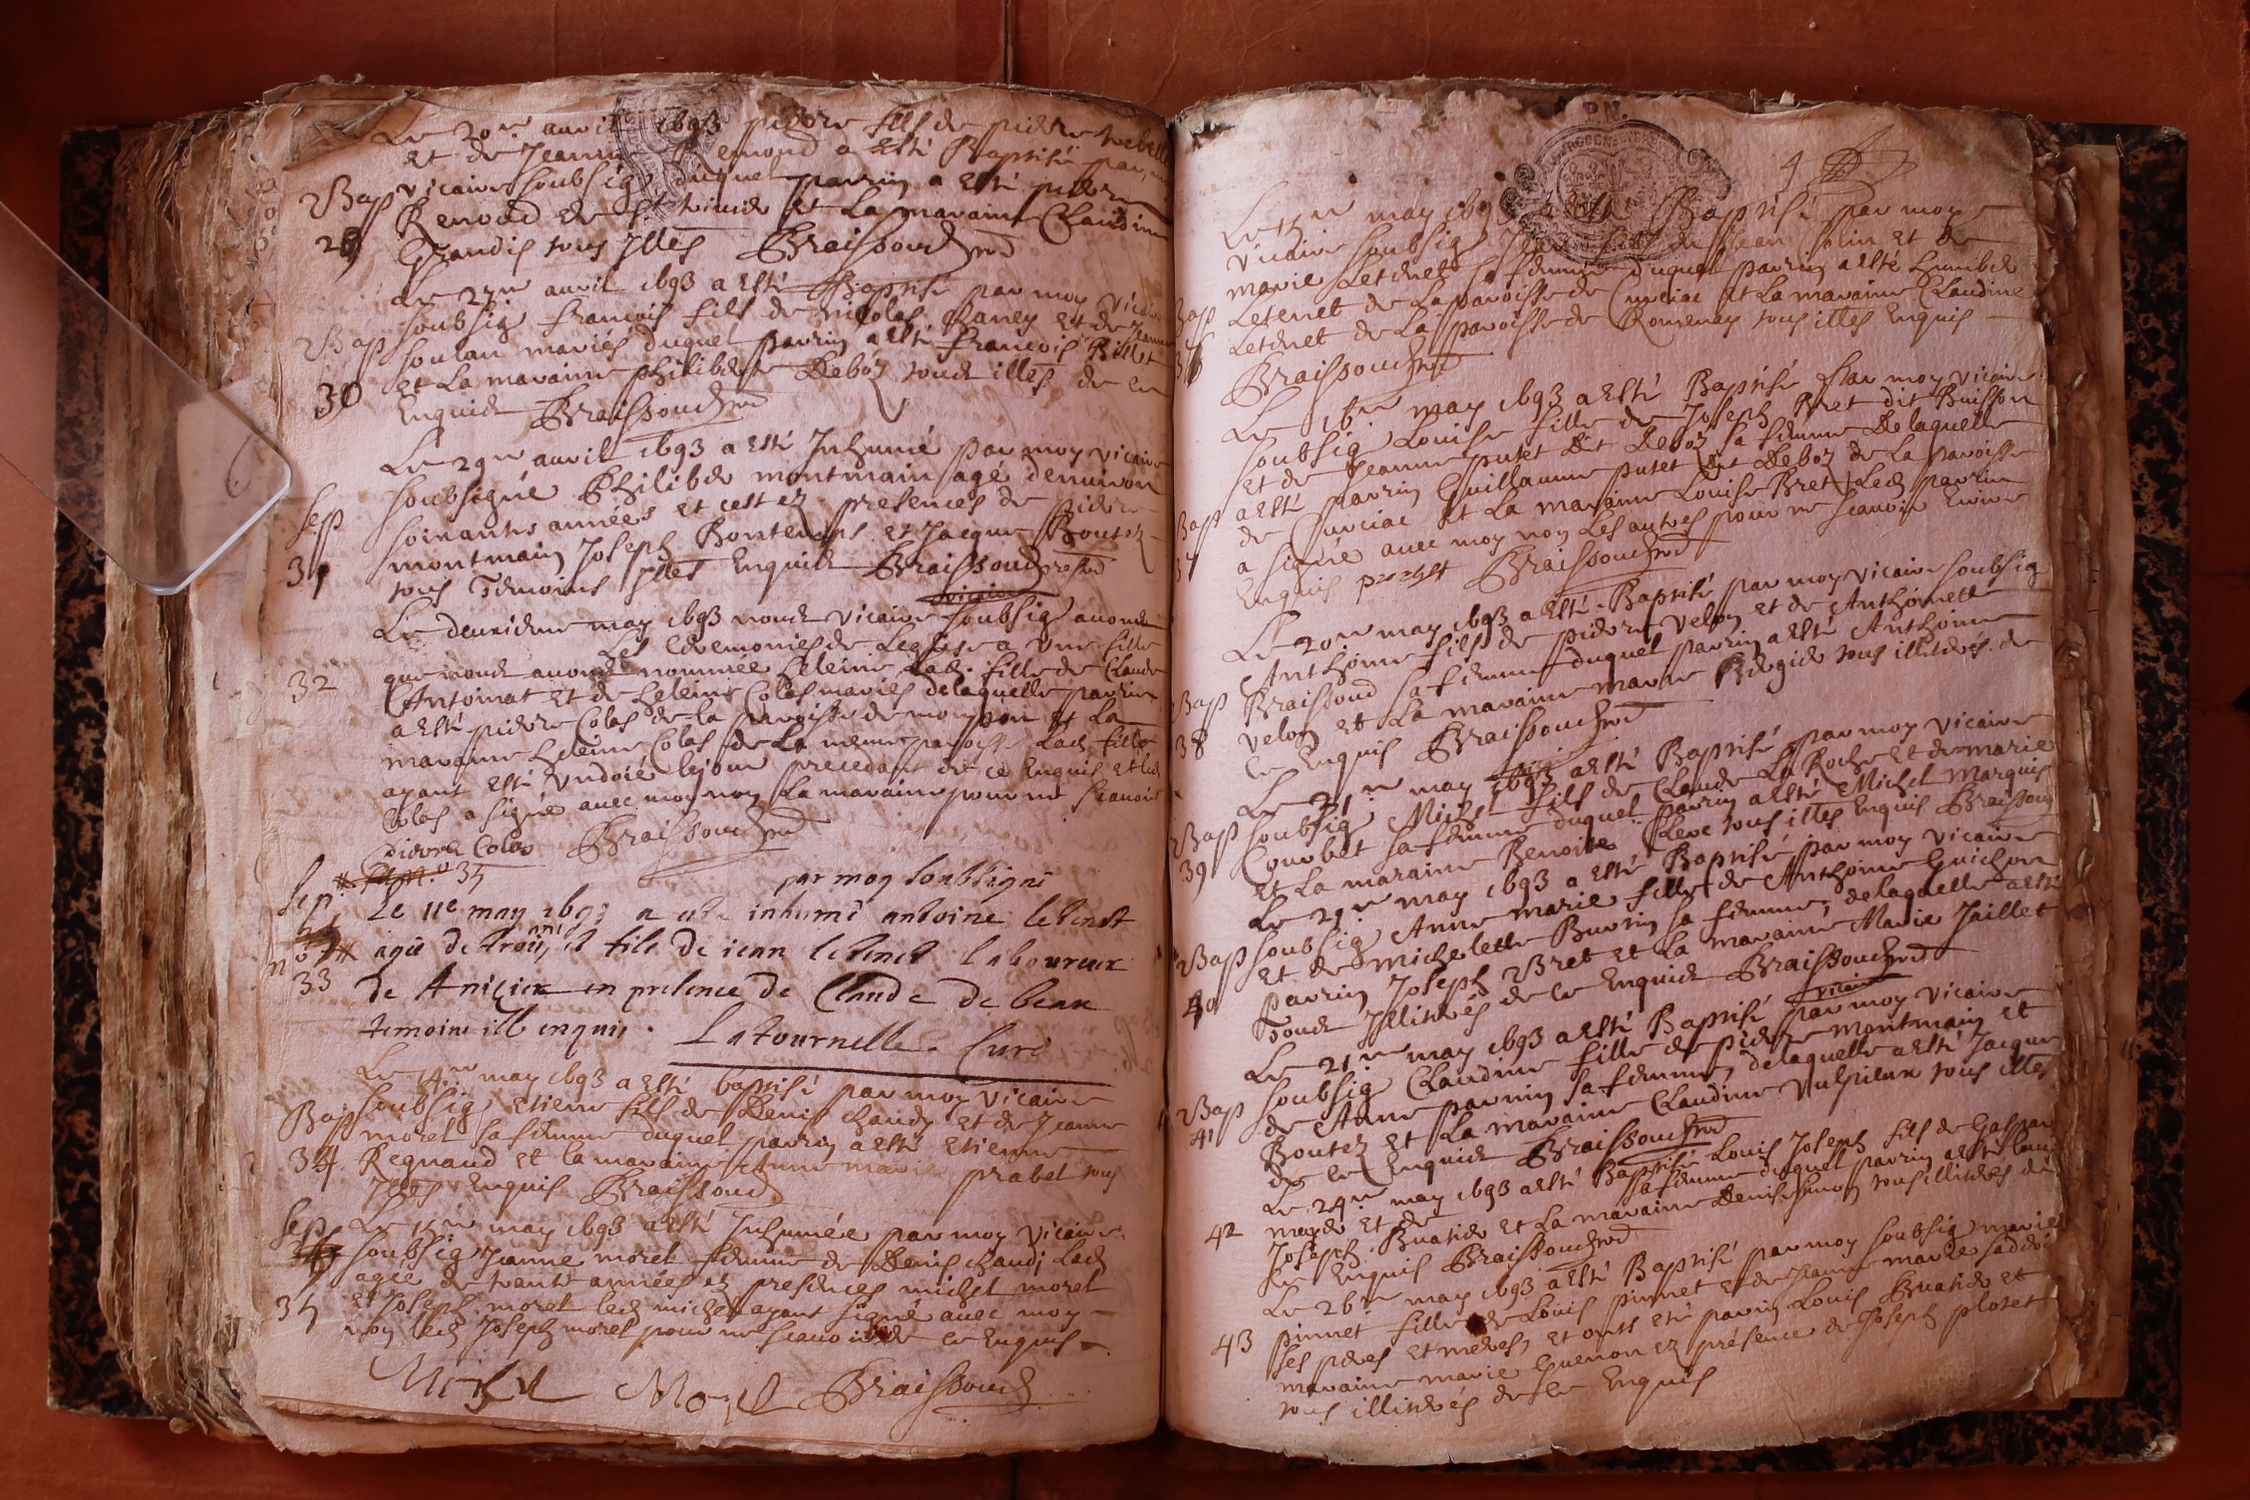 Le 20.e auril 1693 pierre fils de pierre
et de Jeanne Remond a esté Baptisé par
Bap vicaire soubsig duquel parrin a esté pierre
Renoud de et La maraine Claudine
29 Grandis tous Illes Braissoud
Le 27e auril 1693 a esté Baptisé par moy vicaire
soubsig francois fils de nicolas Raney et de Jeanne
Bap soulan mariés duquel parrin a esté francois Billet
et La maraine philiberte Deboz touts illes de ce
30 Enquis Braissoud
Le 29e auril 1693 a esté Inhumé par moy vicaire
soubsigné Philiber montmain agé denuiron
Sep soixante années et cest ez presences de pierre
montmain Joseph Bontemps et Jacque Boutez
31 tous Temoins Illes Enquis Braissoud
vicaire
Le deuxieme may 1693 nous vicaire soubsig auons
Les Ceremonies de Leglise a vne fille
32 que nous auons nommée Heleine Lad. fille de Claude
Antoinat et de Heleine Colas mariés delaquelle parrin
a esté pierre Colas de la paroisse de et La
maraine Heleine Colas de La meme paroisse Lad. fille
ayant esté Undoié lejour precedant de ce Enquis et led
Colas a signé avec moy non La maraine pour ne scauoir
pierre Colas Braissoud
35
Sep. par moy soubsigné
Le 11e may 1693 a esté inhumé antoine letenet
no agé de trois fils de iean letenet laboureur
33 de Anizieu en presence de Claude de beau
temoins ill enquis. Latournelle Curé
Le 14.e may 1693 a esté baptisé par moy vicaire
Bap soubsig Etiene fils de Denis chaudy et de Jeanne
morel sa femme duquel parrin a esté Etienne
34 Regnaud et la maraine Anne marie prabel tous
Illes Enquis Braissoud
Sep Le 15e may 1693 a esté Inhumée par moy vicaire
soubsig Jeanne morel femme de Denis chaudi Lad
agée de trante années ez presences michel morel
35 et Joseph morel led michel ayant signé avec moy
non led Joseph morel pour ne scauoir de ce Enquis
Michel Morel Braissoud
4
Le 15e may 1693 a esté Baptisé par moy
vicaire soubsig Jean fils de Jean Colin et de
marie Letenet sa femme duquel parrin a esté humber
Bap Letenet de La paroisse de Curciac et La maraine Claudine
36 Letenet de La paroisse de Romenay tous illes Enquis
Braissoud
Le 16e may 1693 a esté Baptisé par moy vicaire
soubsig Louise fille de Joseph Bret dit Buisson
et de Jeanne putet dit Deboz sa femme Delaquelle
Bap a esté parrin Guillaume putet dit Deboz de La paroisse
de Curciac et La maraine Louise Bret Led parrin
37 a signé avec moy non Les autres pour ne scauoir Ecrire
Enquis Braissoud
Le 20.e may 1693 a esté Baptisé par moy vicaire soubsig
Anthoine fils de pierre velon et de Anthoinette
Bap Braissoud sa femme duquel parrin a esté Anthoine
38 velon et La maraine marie tous illiterés de
ce Enquis Braissoud
Le 21e may 1693 a esté Baptisé par moy vicaire
Bap soubsig Michel fils de Claude La Roche et de marie
Courbet sa femme duquel parrin a esté Michel Marquis
39 et La maraine Benoite tous illes Enquis Braissoud
Le 21e may 1693 a esté Baptisé par moy vicaire
Bap soubsig Anne marie fille de Anthoine Guichon
et de michelette Buvrin sa femme, delaquelle a esté
40 parrin Joseph Bret et La maraine Marie Jaillet
Tous Illiterés de ce Enquis Braissoud
vicaire
Le 21e may 1693 a esté Baptisé par moy vicaire
Bap soubsig Claudine fille de pierre montmain et
41 de Anne parrin sa femme, delaquelle a esté Jacque
Boutez et La maraine Claudine Vulpieux tous illes
de ce Enquis Braissoud
Le 24e may 1693 a esté Baptisé Louis Joseph fils de Gaspar
42 et de sa femme duquel parrin a esté
Joseph Buatier et La maraine Denise tous illiteres de
ce Enquis Braissoud
Le 26e may 1693 a esté Baptisé par moy soubsig marie
43 pinnet fille de Louis pinnet et de Jeanne
ses peres et meres, et onts ete parrin Louis Buatier et
maraine marie Guenon ez présence de Joseph plotet
tous illiterés de ce Enquis